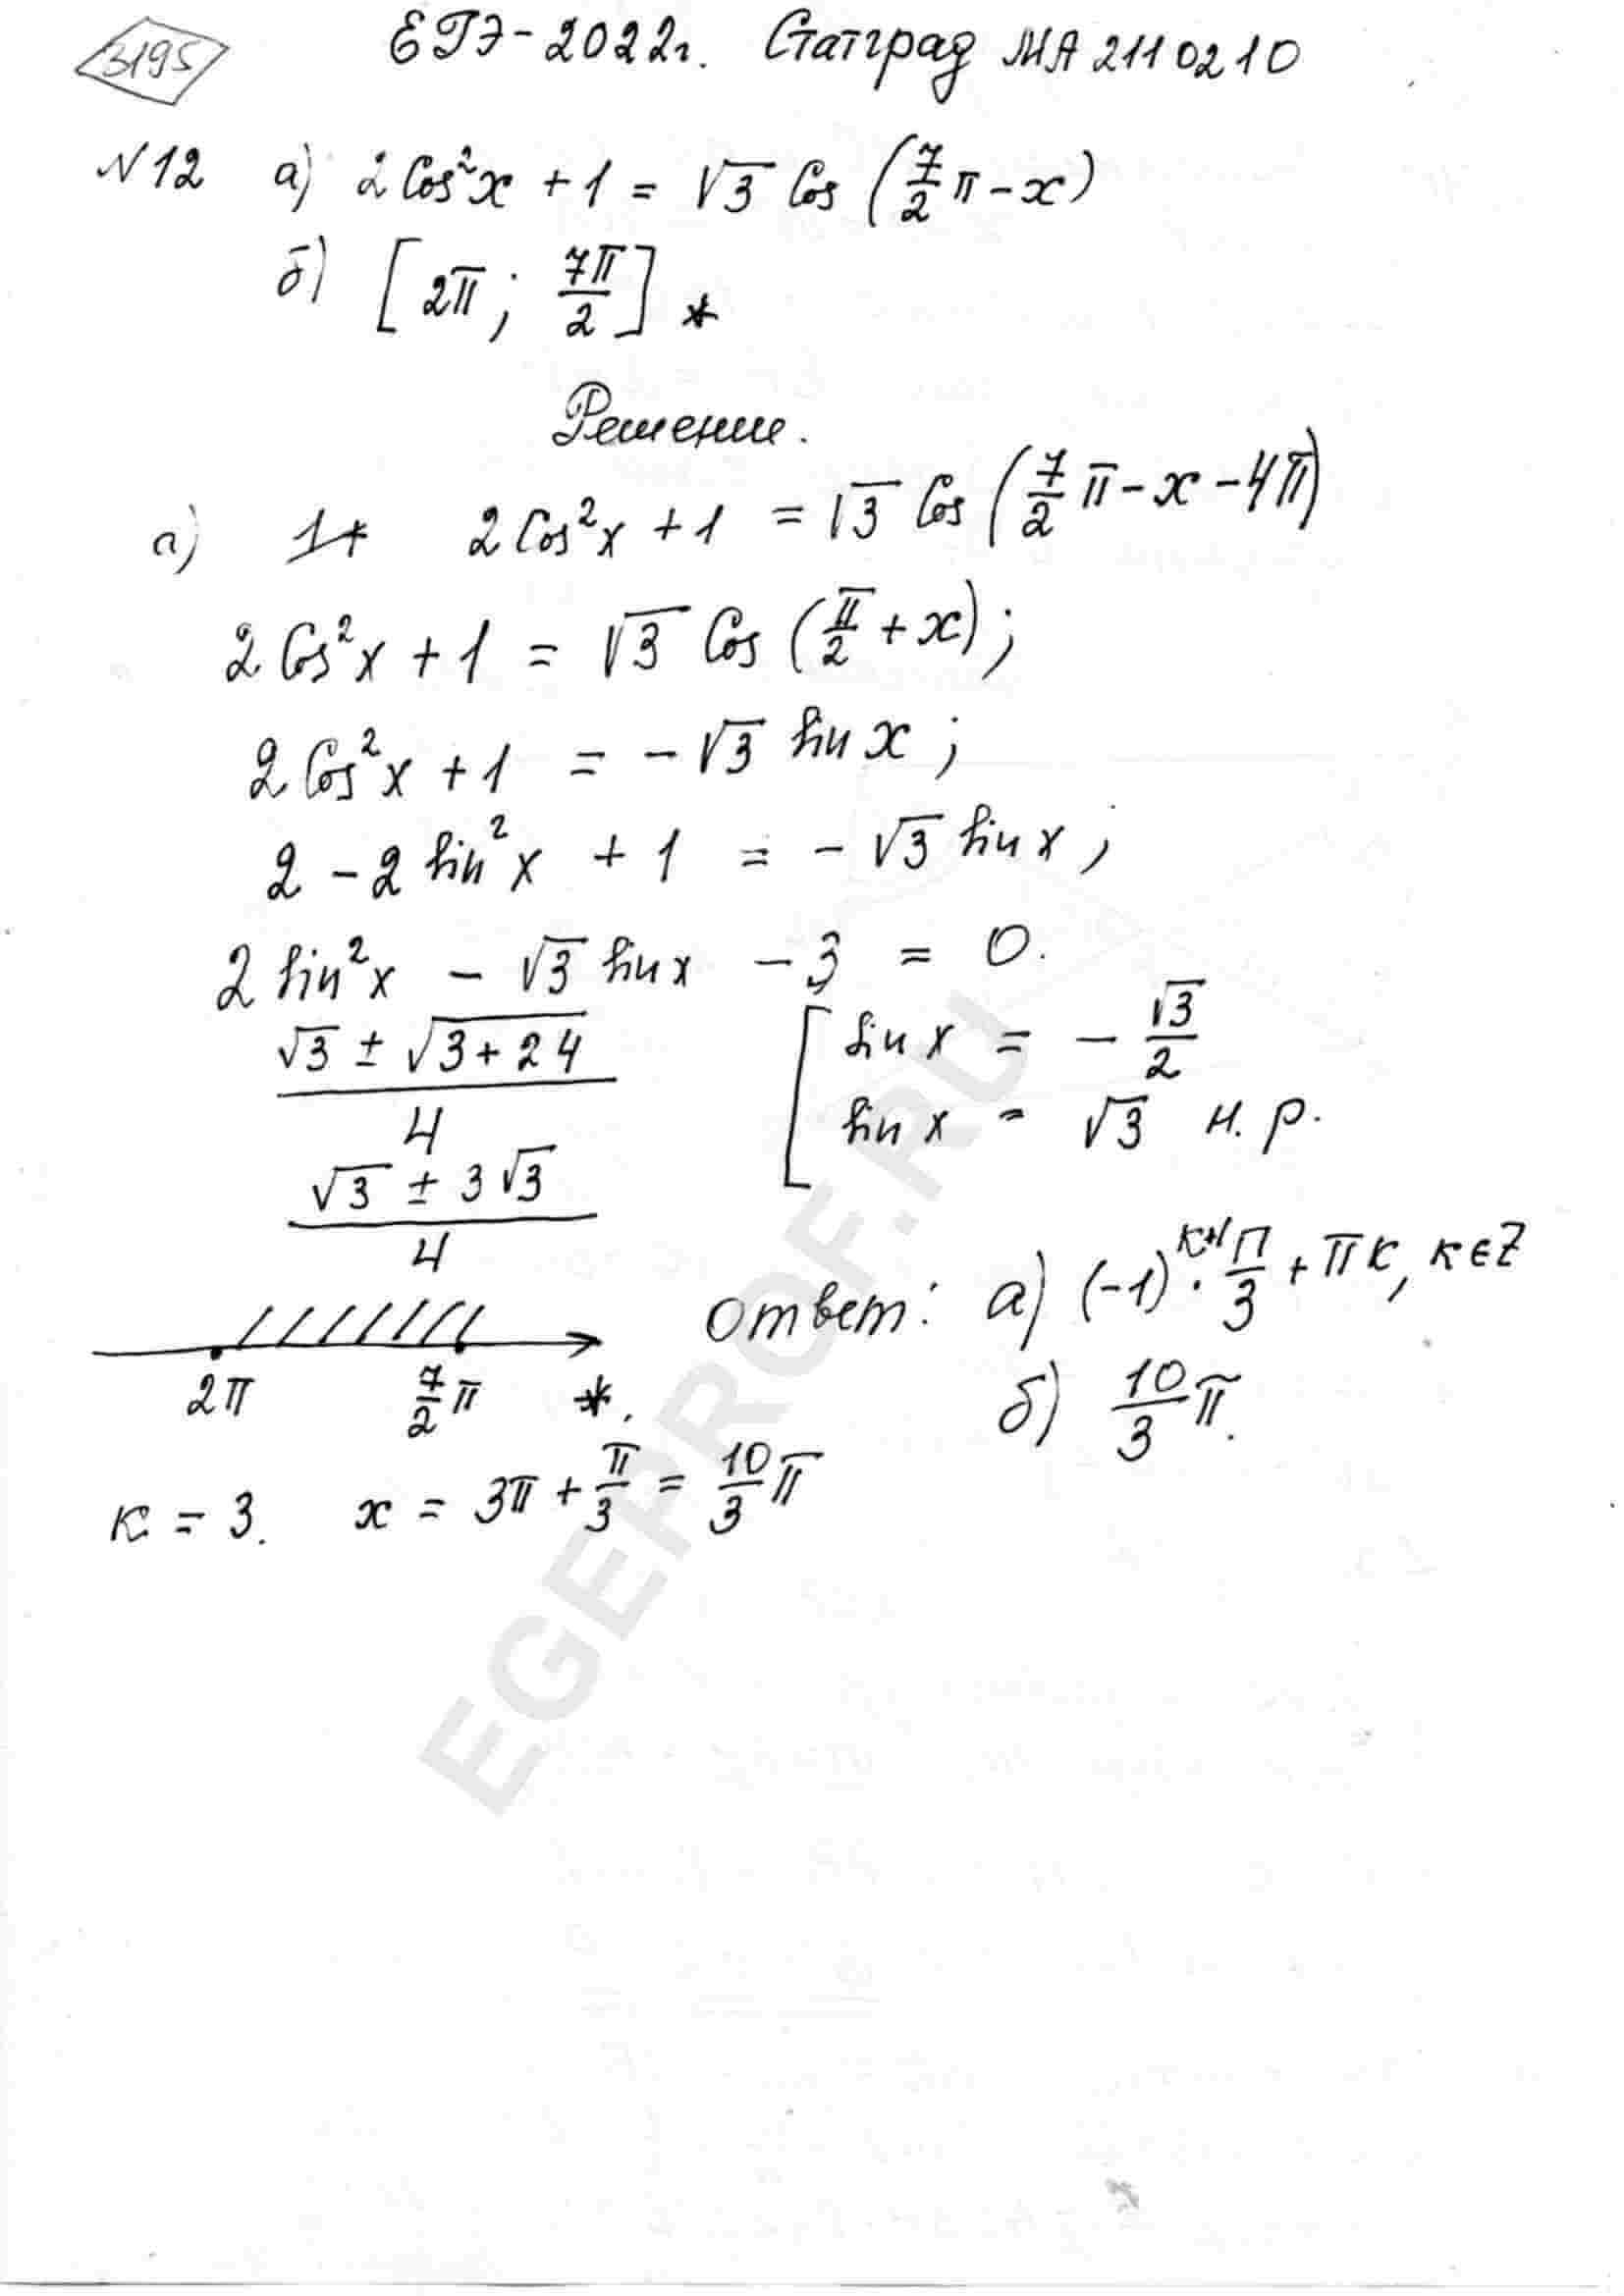 3195
ЕГЭ-2022г. Статград МА2110210
№12 а) 2Cos²x + 1 = √3 Cos (7/2 π - x)
б) [2π; 7π/2] *
Решение.
а) 1+ 2Cos²x + 1 = √3 Cos (7/2 π - x - 4π)
2Cos²x + 1 = √3 Cos (π/2 + x);
2Cos²x + 1 = -√3 sin x;
2 - 2sin²x + 1 = -√3 sin x;
2sin²x - √3 sin x - 3 = 0.
(√3 ± √(3+24))/4
[ sin x = -√3/2
sin x = √3 н.р.
(√3 ± 3√3)/4
Ответ: а) (-1)^(к+1) · π/3 + πк, к∈Z
б) 10/3 π.
2π 7/2 π *.
к = 3. x = 3π + π/3 = 10/3 π
EGEPROF.RU